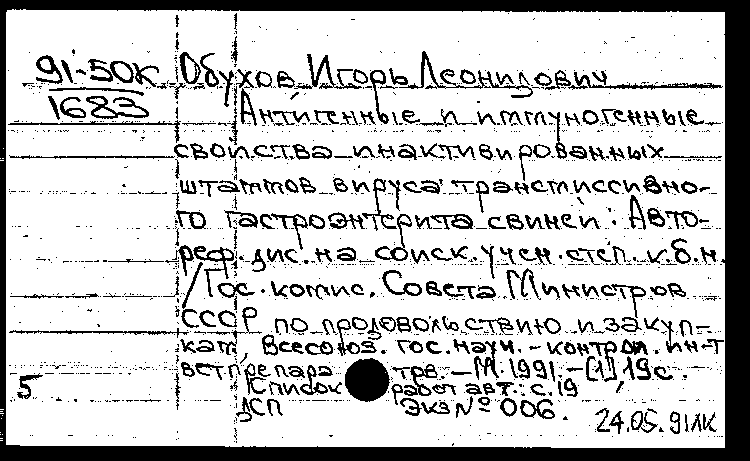 91-50К Обухов Игорь Леонидович
1683 Антигенные и иммуногенные
свойства инактивированных
штаммов вируса трансмиссивно-
го гастроэнтерита свиней: Авто-
реф. дис. на соиск. учен. степ. к.б.н.
/Гос. комис. Совета Министров
СССР по продовольствию и закуп-
кам, Всесоюз. гос. науч.-контрол. ин-т
ветпрепаратов.-М. 1991.-[1], 19с.
5 Список работ авт.: с. 19
ДСП Экз № 006.
24.05.91ЛК